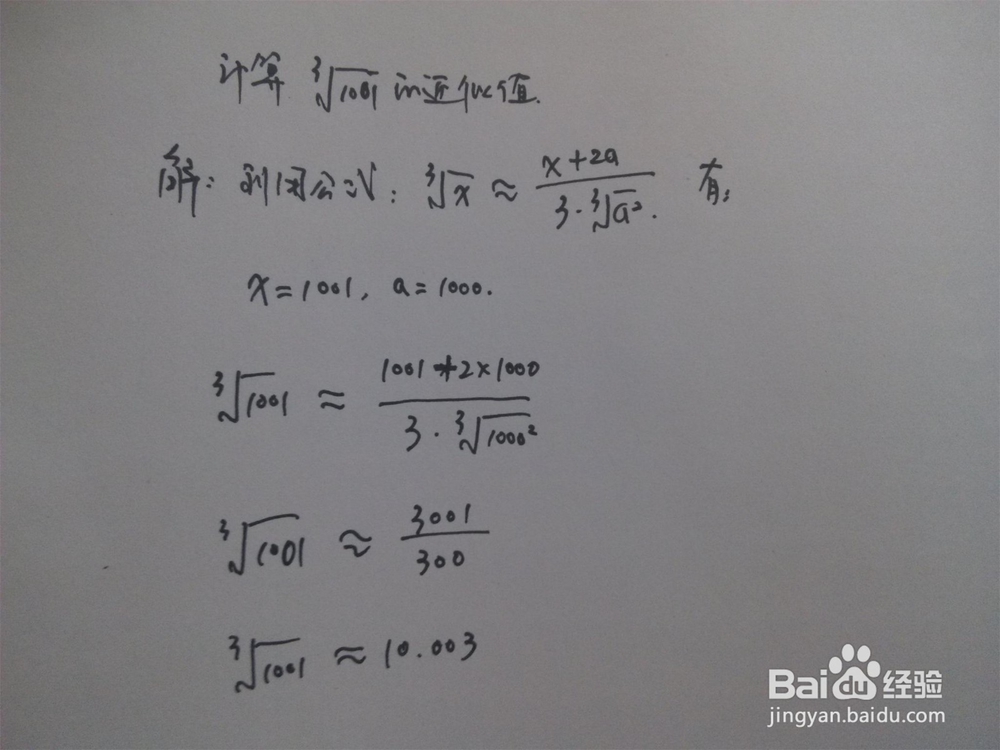 计算 ∛1001 的近似值.
解: 利用公式: ∛x ≈ (x+2a)/(3·∛a²). 有:
x=1001, a=1000.
∛1001 ≈ (1001+2×1000)/(3·∛1000²)
∛1001 ≈ 3001/300
∛1001 ≈ 10.003
Baidu经验
jingyan.baidu.com